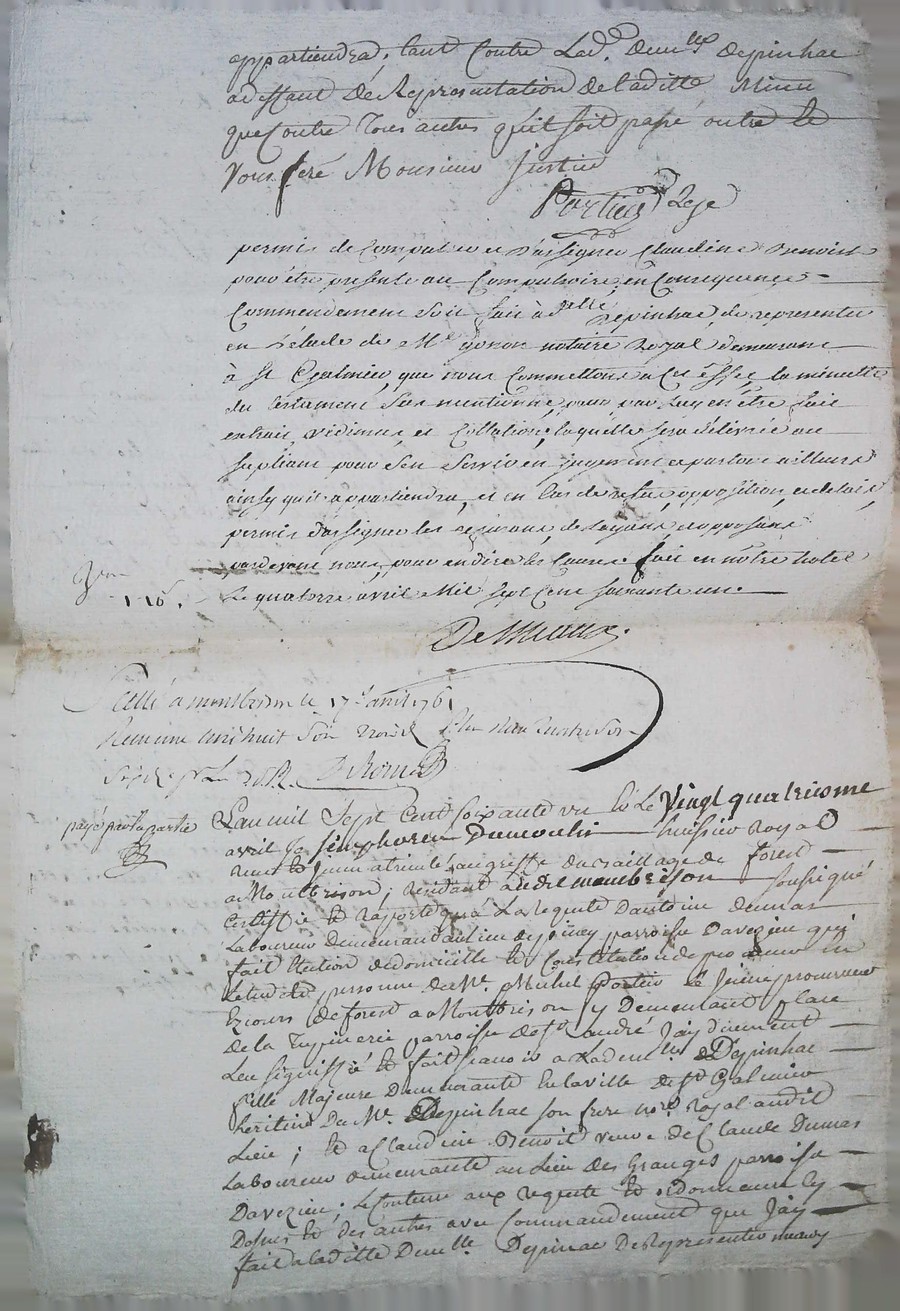 appartiendra, tant Contre Lad.e Demlle Depinhac
adeffaut de Representation de laditte Minu
que Contre Tous autres quil soit passé outre le
Vous feré Monsieur Justice
Portier Leje
permis de Compulser et d'assigner Claudine Benoist
pour être presente au Compulsoire, en Consequence
Commendement soit fait à delle Depinhac, de representer
en l'etude de Me gonon notaire Royal demeurant
à St Galmier, que nous Commettons a Cet effet, la minutte
du testament sus mentionné, pour par luy en être fait
extrait, vidimus, et Collation, laquelle sera délivrée au
supliant pour s'en servir en jugement et partout ailleurs
ainsy quil appartiendra, et en Cas de refus, opposition, et delais,
permis d'assigner les refusans, delayans, et opposans
pardevant nous, pour en dire les Causes fait en nôtre hotel
Le quatorze avril Mil sept Cent soixante un
DeMeaux
Scellé a montbrison le 17e avril 1761
Reçu
payé par la partie
Lan mil Sept Cent soixante un le Le Vingt quatrieme
avril Je simphorien Dumoulin huissier Royal
receu et immatriculé au greffe du Bailliage de forest
a Montbrison, residant audit montbrison soussigné
Certiffie et raporte qua La requete dantoine dumas
Laboureur Demeurant au lieu de parroisse Davezieu qui
fait Election de domicille et Constitution de procureur en
Letude et personne de Me. Michel Portier le Jeune procureur
Ez cours de forest a Montbrison y Demeurant place
de la parroisse de St andré Jay Duement
Leu signiffié et fait scavoir a Lademlle Depinhac
fille Majeure Demeurante En laville de St Galmier
heritiere Du Me. Depinhac son frere nore Royal audit
Lieu; Et a Claudine Benoit veuve de Claude Dumas
Laboureur demeurante au Lieu des Granges parroisse
Davezieu; Le Contenu aux requete Et ordonnance Cy
Dessus Et des autres avec Commandement que Jay
fait a laditte Demlle Depinac De Representer